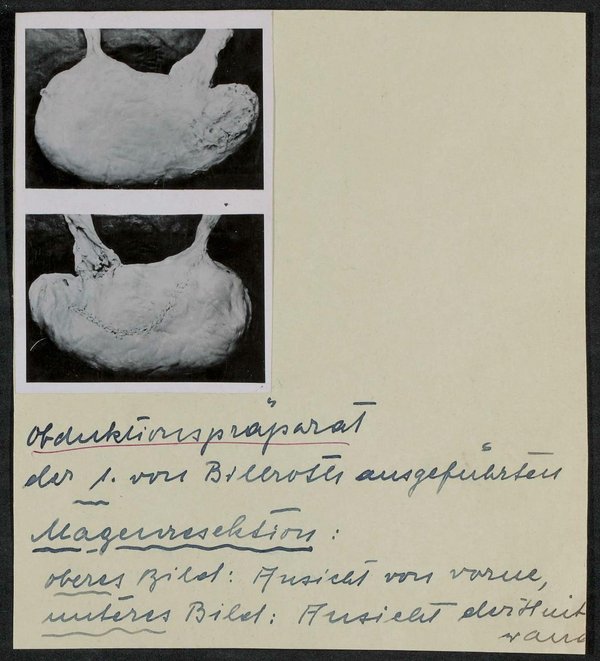 Obduktionspräparat
der 1. von Billroth ausgeführten
Magenresektion:
oberes Bild: Ansicht von vorne,
unteres Bild: Ansicht der Hint
wand